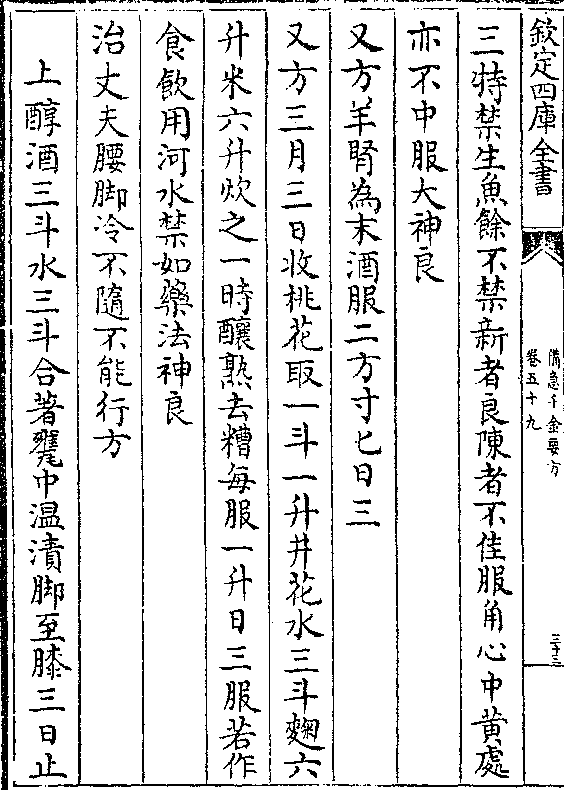 欽定四庫全書
備急千金要方
卷五十九
三十三
三特禁生魚餘不禁新者良陳者不佳服角心中黄處
亦不中服大神良
又方羊腎為末酒服二方寸匕日三
又方三月三日收桃花取一斗一升井花水三斗麴六
升米六升炊之一時釀熟去糟每服一升日三服若作
食飲用河水禁如藥法神良
治丈夫腰脚冷不隨不能行方
上醇酒三斗水三斗合著甕中温漬脚至膝三日止